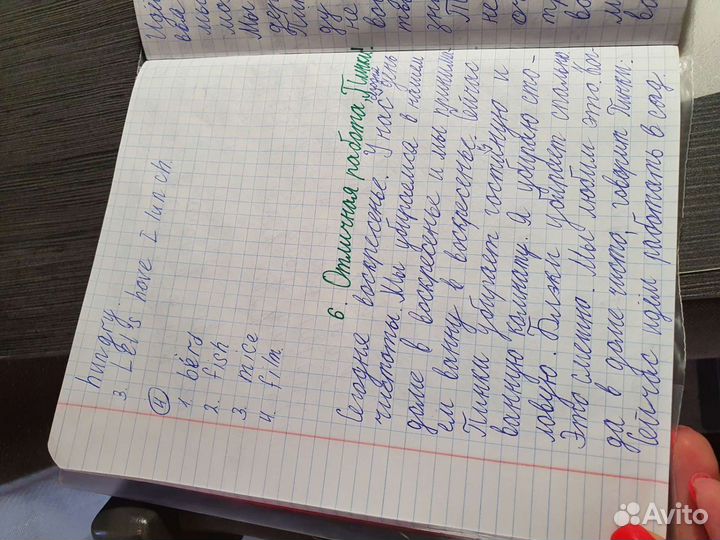 hungry.
3. Let's have I lunch.
II
1. bers
2. fish
3. mice
4. film.
6. Отличная работа, Пинки!
Сегодня воскресенье. У нас день
чистоты. Мы убираемся в нашем
доме в воскресенье и мы принима-
ем ванну в воскресенье. Сейчас
Пинки убирает гостиную и
ванную комнату. Я убираю сто-
ловую. Блэки убирает спальню.
Это смешно. Мы любим это, ко-
гда в доме чисто, говорит Пинки.
Сейчас идём работать в сад.
Avito